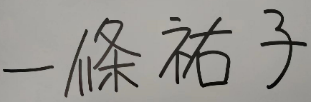 一條祐子